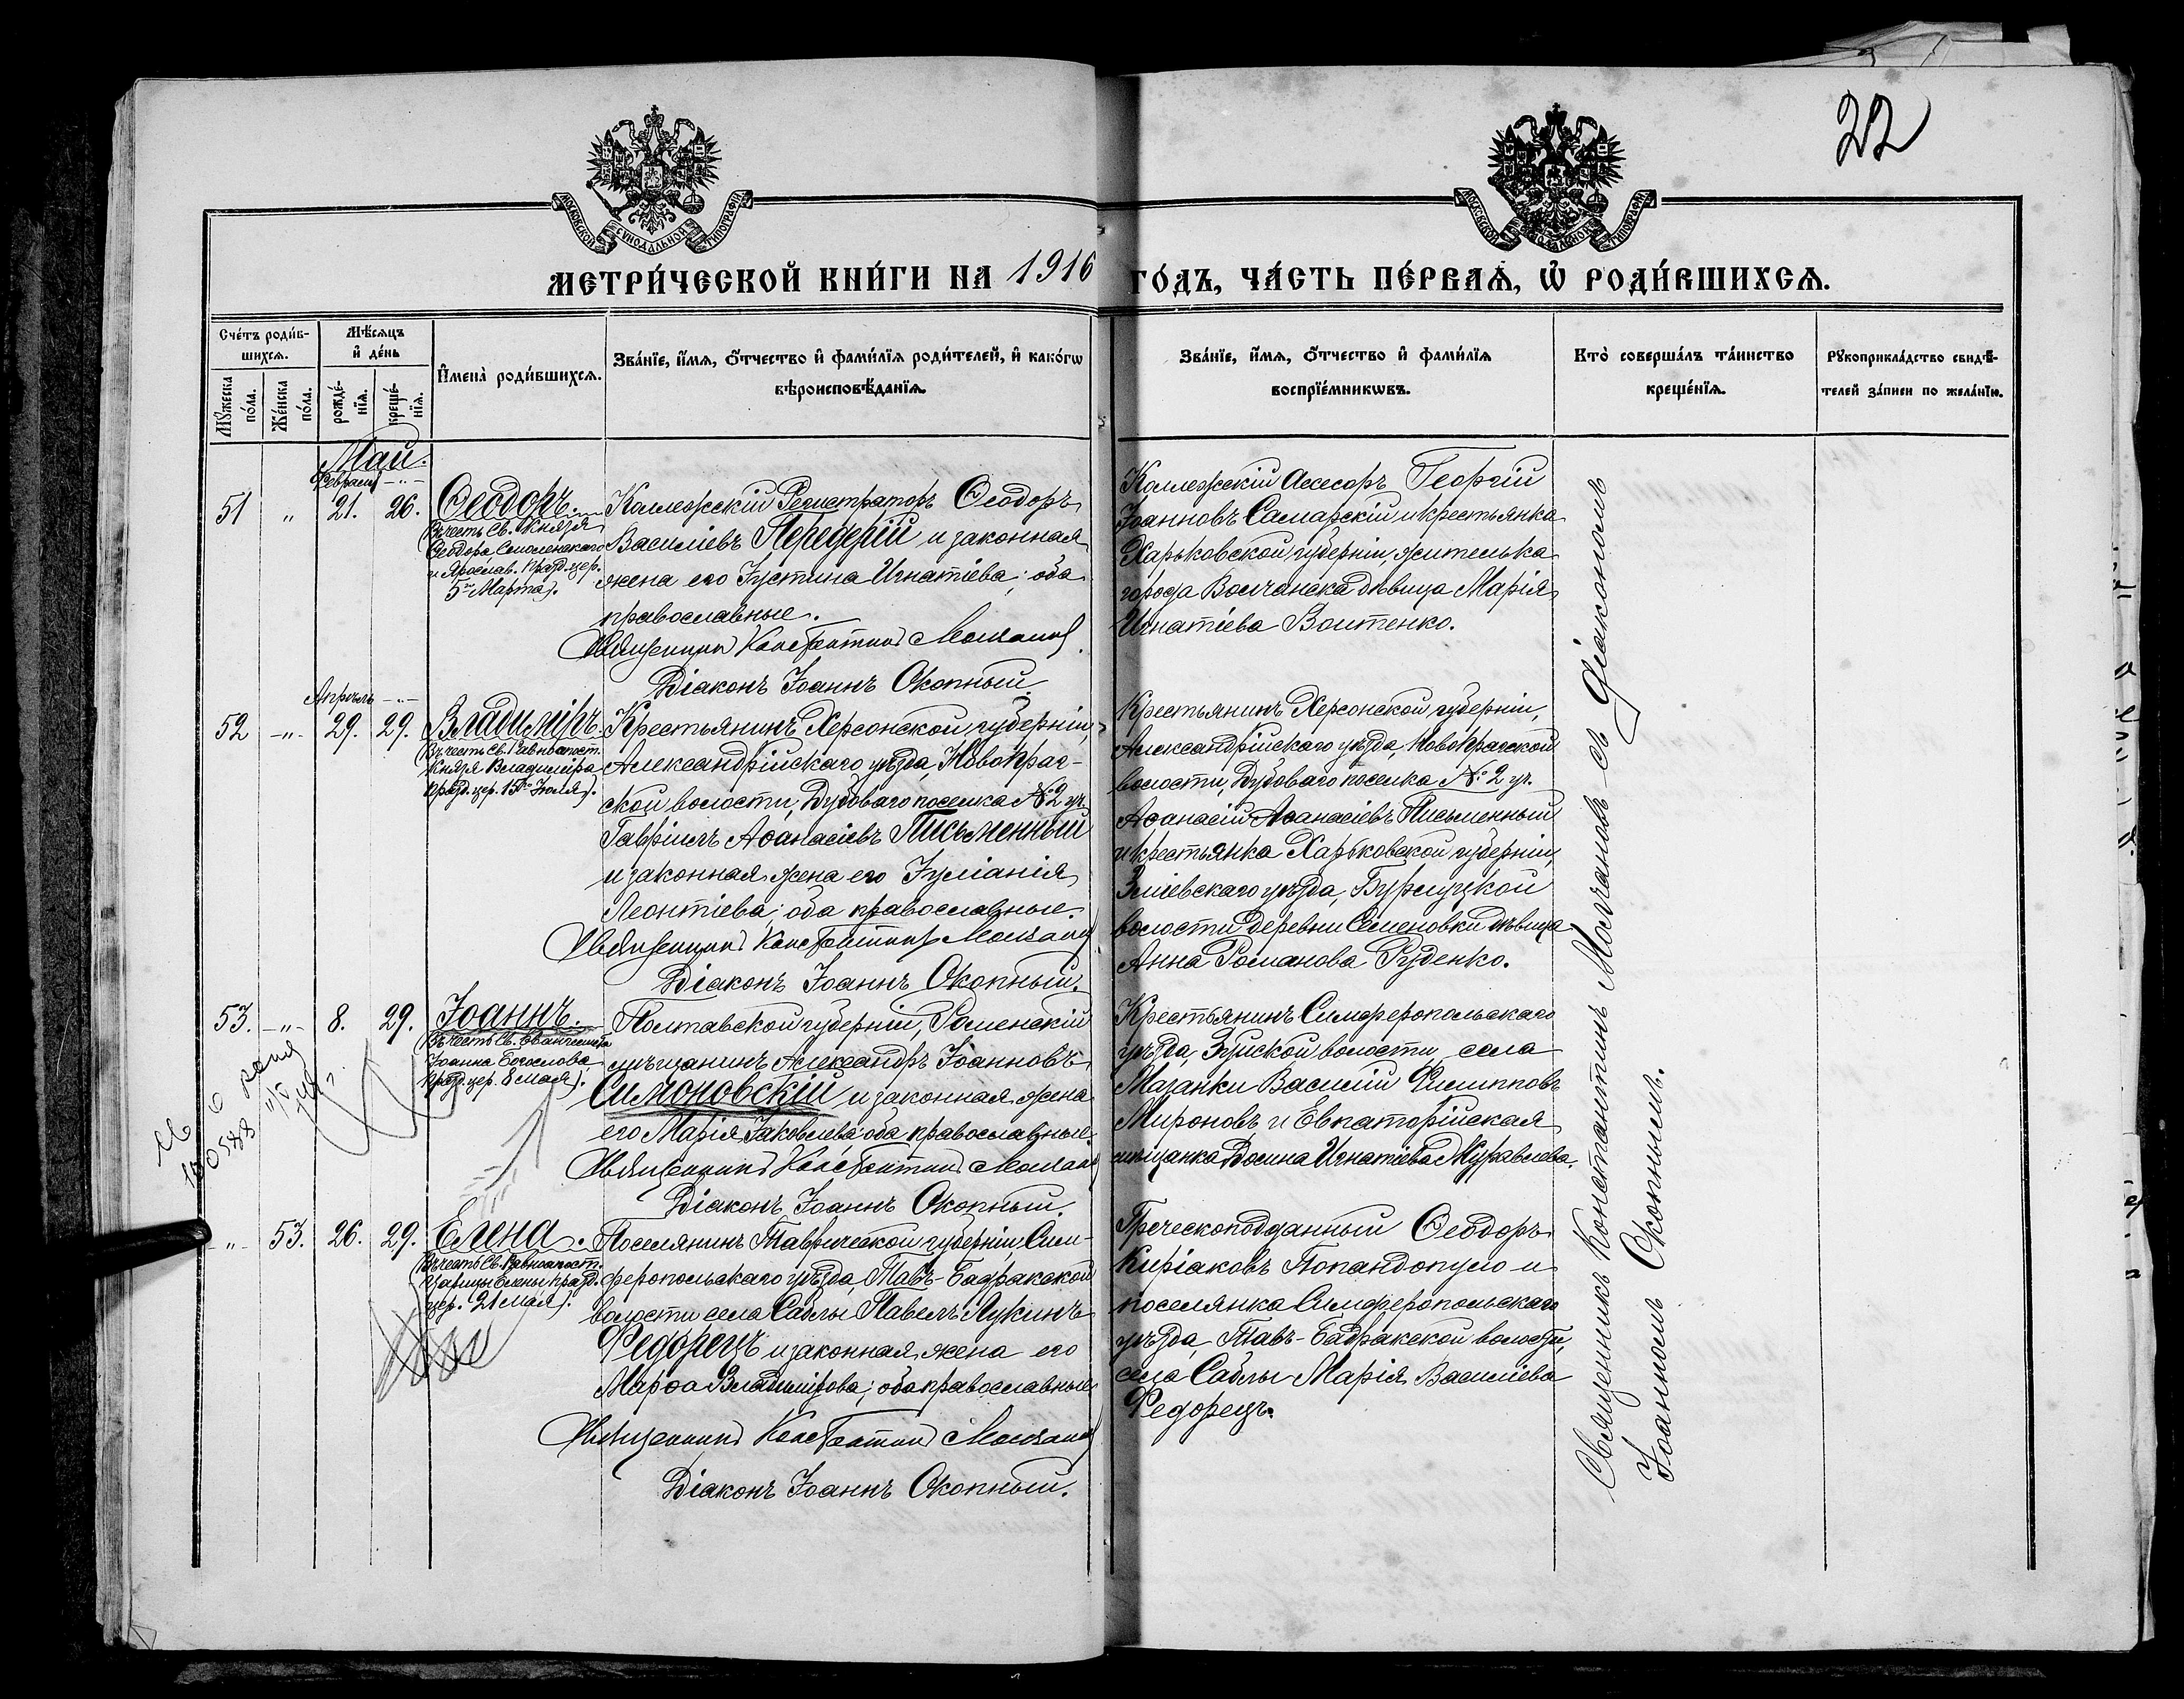 22
МОСКОВСКОЙ СѴНОДАЛЬНОЙ ТИПОГРАФІИ
МОСКОВСКОЙ СѴНОДАЛЬНОЙ ТИПОГРАФІИ
МЕТРИ́ЧЕСКОЙ КНИ́ГИ НА 1916 ГО́ДЪ, ЧА́СТЬ ПЕ́РВАѦ, Ѡ҆ РОДИ́ВШИХСѦ.
Сче́тъ роди́в-
шихсѧ.
Мꙋжеска по́ла.
Же́нска по́ла.
Мѣ́сѧцъ
и҆ де́нь
рожде́-
нїѧ.
креще́-
нїѧ.
И҆мена̀ роди́вшихсѧ.
Зва́нїе, и҆́мѧ, ѻ҆́тчество и҆ фами́лїѧ роди́телей, и҆ како́гѡ
вѣроисповѣ́данїѧ.
Зва́нїе, и҆́мѧ, ѻ҆́тчество и҆ фами́лїѧ
воспрїе́мникѡвъ.
Кто̀ соверша́лъ та́инство
креще́нїѧ.
Рꙋкоприкла́дство свидѣ́-
телей за́писи по жела́нїю.
Май.
Февраль -"-
51 " 21. 26. Ѳеодоръ.
(Въ честь Св. Князя
Ѳеодора Смоленскаго
и Ярослав. празд. цер.
5го Марта).
Коллежскій Регистраторъ Ѳеодоръ
Василіевъ Передерій и законная
жена его Іустина Игнатіева; оба
православные.
Священникъ Константинъ Молчановъ.
Діаконъ Іоаннъ Окопный.
Коллежскій Ассесоръ Георгій
Іоанновъ Самарскій и крестьянка
Харьковской губерніи, жителька
города Волчанска дѣвица Марія
Игнатіева Воитенко.
Апрѣль -"-
52 -"- 29. 29. Владиміръ.
(Въ честь Св. Равноапост.
Князя Владиміра
празд. цер. 15го Іюля).
Крестьянинъ Херсонской губерніи,
Александрійскаго уѣзда, Новопраг-
ской волости, Дубоваго поселка №2 уч.
Гавріилъ Аѳанасіевъ Письменный
и законная жена его Іуліанія
Леонтіева; оба православные.
Священникъ Константинъ Молчановъ
Діаконъ Іоаннъ Окопный.
Крестьянинъ Херсонской губерніи,
Александрійскаго уѣзда, Новопрагской
волости, Дубоваго поселка №2 уч.
Аѳанасій Аѳанасіевъ Письменный
и крестьянка Харьковской губерніи,
Зміевскаго уѣзда, Бурлуцкой
волости деревни Семеновки дѣвица
Анна Романова Руденко.
53. -"- 8. 29. Іоаннъ.
(Въ честь Св. Евангелиста
Іоанна Богослова
празд. цер. 8 мая).
Полтавской губерніи, Роменскій
мѣщанинъ Александръ Іоанновъ
Симоновскій и законная жена
его Марія Іаковлева; оба православные.
Священникъ Константинъ Молчановъ
Діаконъ Іоаннъ Окопный.
Крестьянинъ Симферопольскаго
уѣзда, Зуйской волости, села
Мазанки Василій Филипповъ
Мироновъ и Евпаторійская
мѣщанка Игнатіева Журавлева.
" 53. 26. 29. Елена.
(Въ честь Св. Равноапост.
Царицы Елены празд.
цер. 21 мая).
Поселянинъ Таврической губерніи, Сим-
феропольскаго уѣзда, Тавъ-Бадракской
волости села Саблы Павелъ Лукинъ
Федорецъ и законная жена его
Марѳа Владимірова; оба православные
Священникъ Константинъ Молчановъ
Діаконъ Іоаннъ Окопный.
Греческоподданный Ѳеодоръ
Киріаковъ Попандопуло и
поселянка Симферопольскаго
уѣзда, Тавъ-Бадракской волости,
села Саблы Марія Василіева
Федорецъ.
Священникъ Константинъ Молчановъ съ Діакономъ
Іоанномъ Окопнымъ.